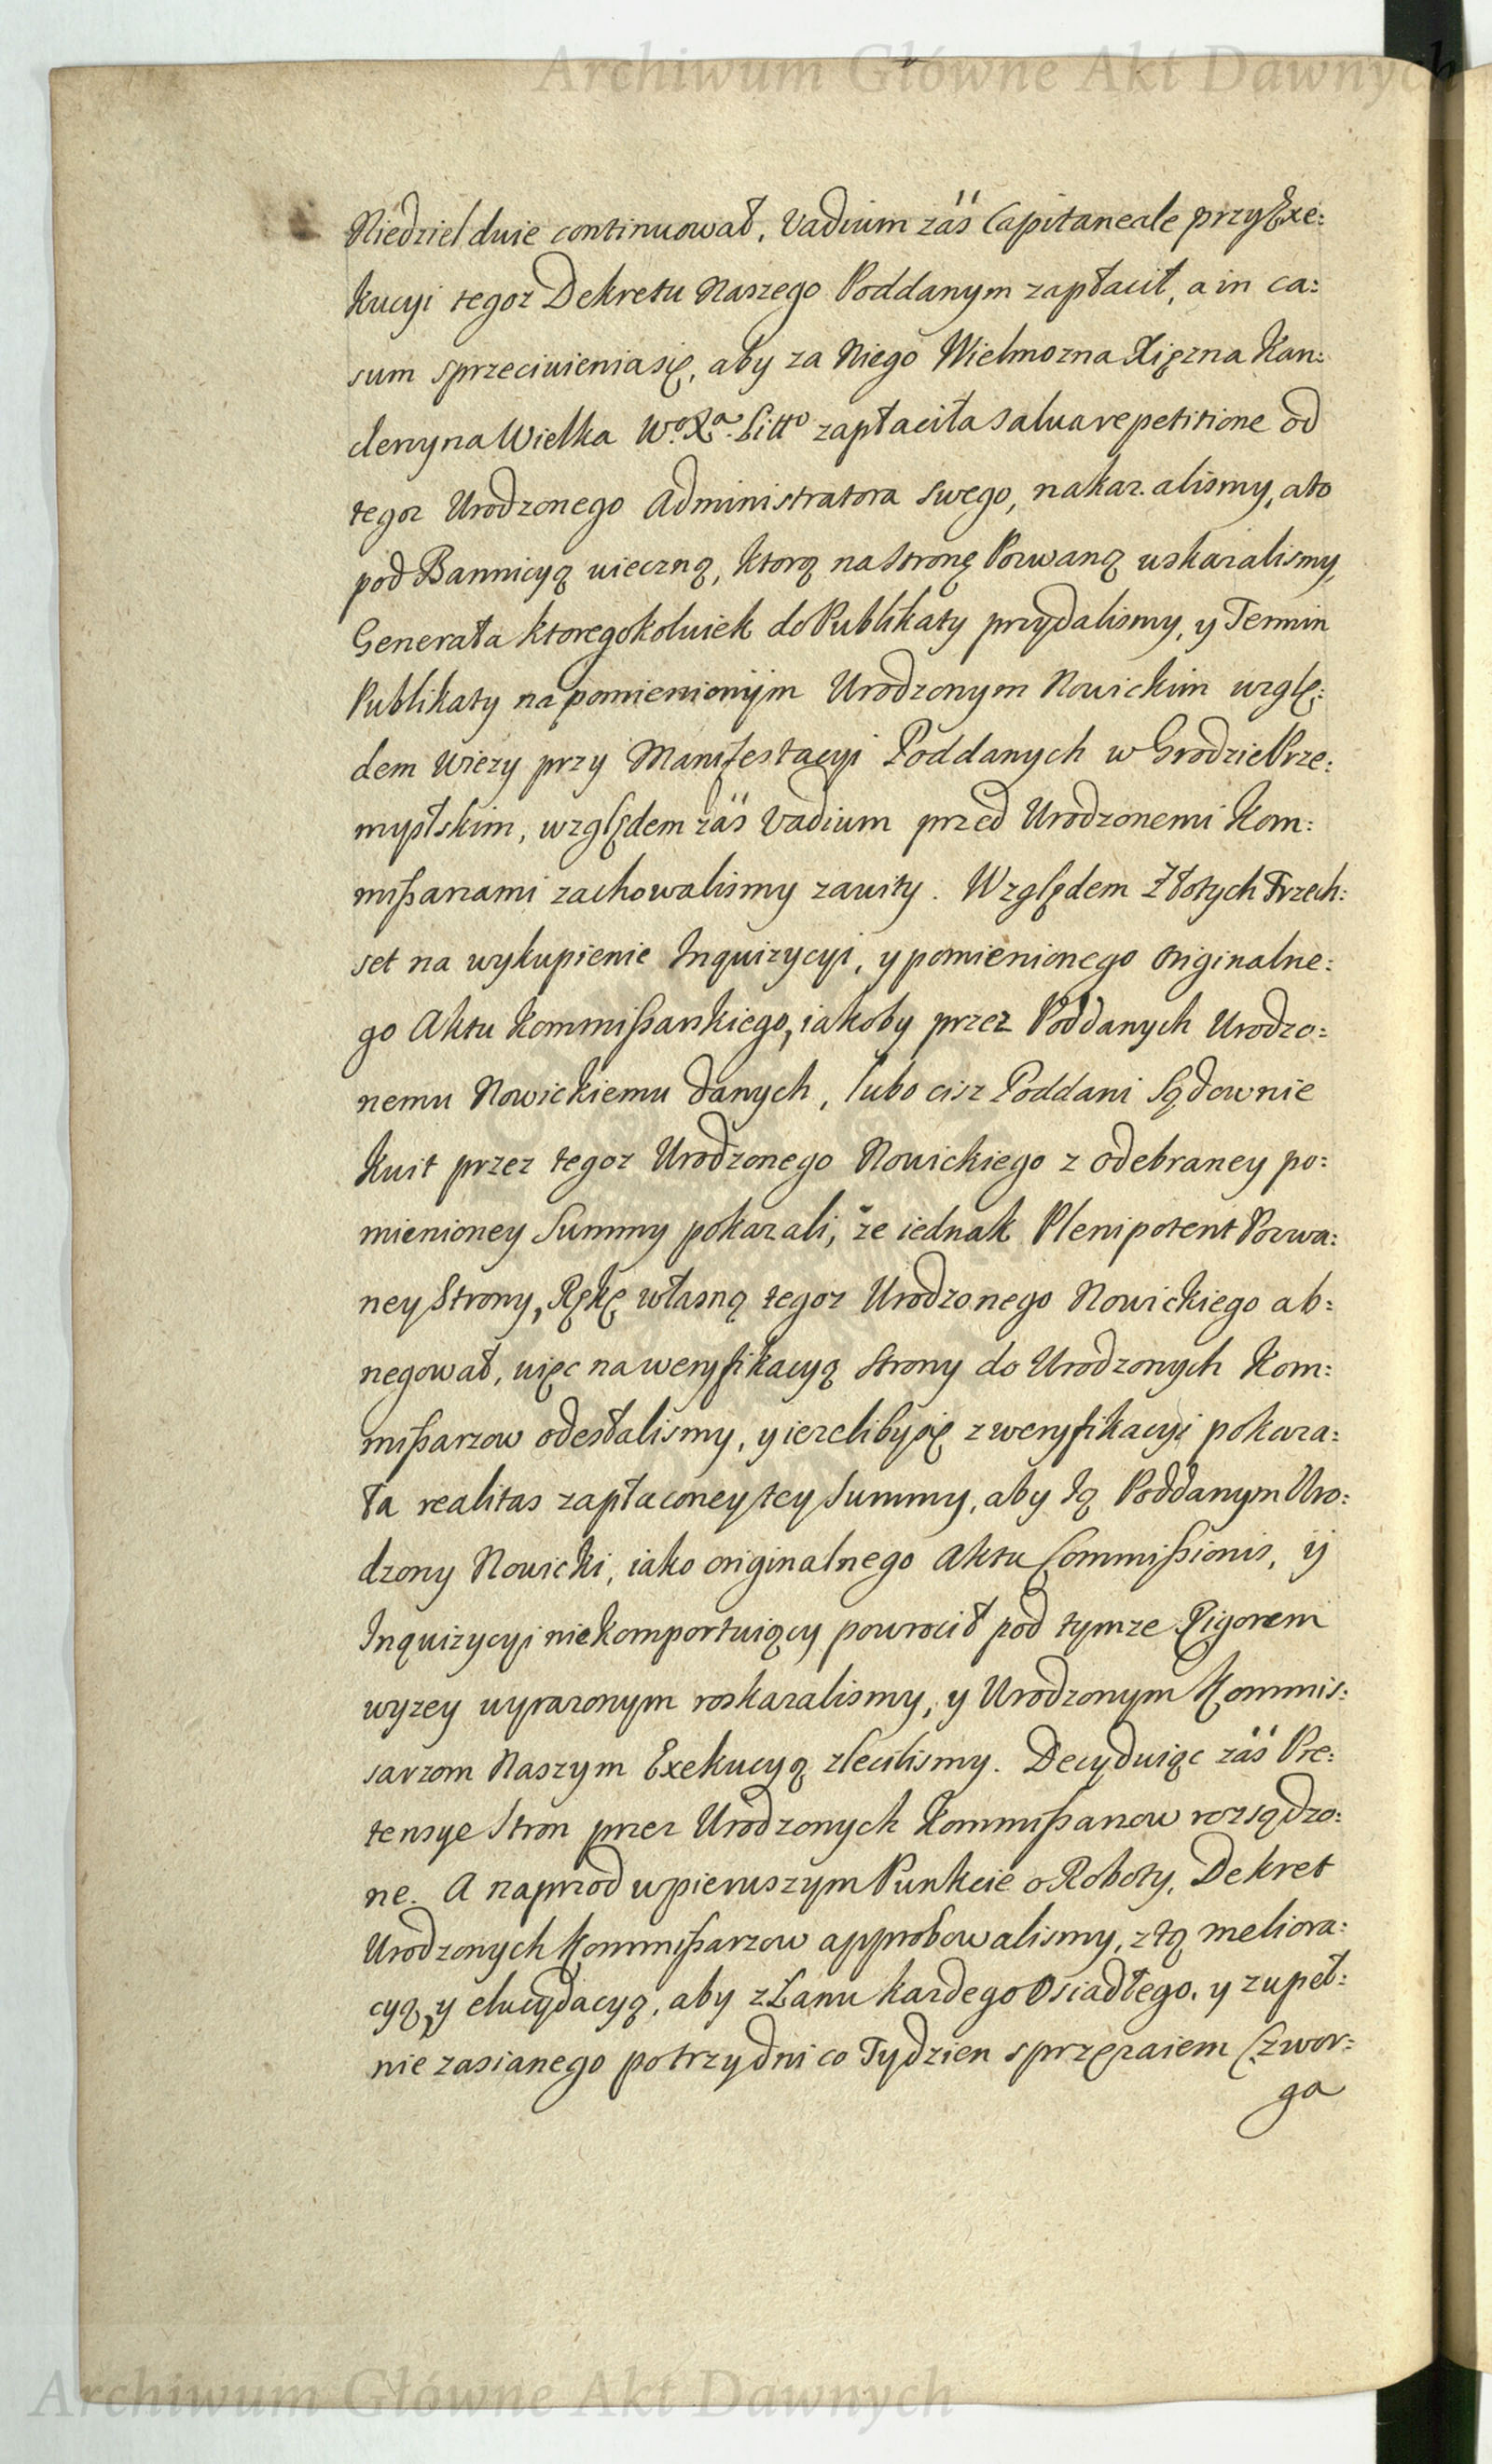 Archiwum Główne Akt Dawnych
Niedziel dwie continuował, Vadium záś Capitaneale przy Exe:
kucyi tegoz Dekretu Naszego Poddanym zapłacił, a in ca:
sum sprzeciwienia się, aby za Niego Wielmozna Xięzna Kan:
clerzyna Wielka Wo. Xa. Litto zapłaciła salva repetitione od
tegoz Urodzonego Administratora swego, nakazalismy, a to
pod Bannicyą wieczną, ktorą na Stronę Pozwaną wskazalismy,
Generała ktoregokolwiek do Publikaty przydalismy, y Termin
Publikaty na pomienionym Urodzonym Nowickim wzglę:
dem Wiezy przy Manifestacyi Poddanych w Grodzie Prze:
mysłskim, względem záś Vadium przed Urodzonemi Kom:
mißarzami zachowalismy zawity. Względem Złotych Trzech:
set na wykupienie Inquizycyi, y pomienionego originalne:
go Aktu Kommißarskiego, iakoby przez Poddanych Urodzo:
nemu Nowickiemu danych, lubo cisz Poddani Sądownie
Kwit przez tegoz Urodzonego Nowickiego z odebraney po:
mienioney Summy pokazali, że iednak Plenipotent Pozwa:
ney Strony, Rękę własną tegoz Urodzonego Nowickiego ab:
negował, więc na weryfikacyą Strony do Urodzonych Kom:
mißarzow odesłalismy, y iezeliby się z weryfikacyi pokaza:
ła realitas zapłaconey tey Summy, aby tą Poddanym Uro:
dzony Nowicki, iako originalnego Aktu Commißionis, y
Inquizycyi niekomportuiący powrocił pod tymze Rigorem
wyzey wyrazonym roskazalismy, y Urodzonym Kommis:
sarzom Naszym Exekucyą zlecilismy. Decyduiąc záś Pre:
tensye Stron przez Urodzonych Kommißarzow rozsądzo:
ne. A naprzod w pierwszym Punkcie o Roboty, Dekret
Urodzonych Kommißarzow approbowalismy, z tą meliora:
cyą, y elucydacyą, aby z Łanu kazdego Osiadłego, y zupeł:
nie zasianego po trzy dni co Tydzien sprzęzaiem Czwor:
ga
Archiwum Główne Akt Dawnych